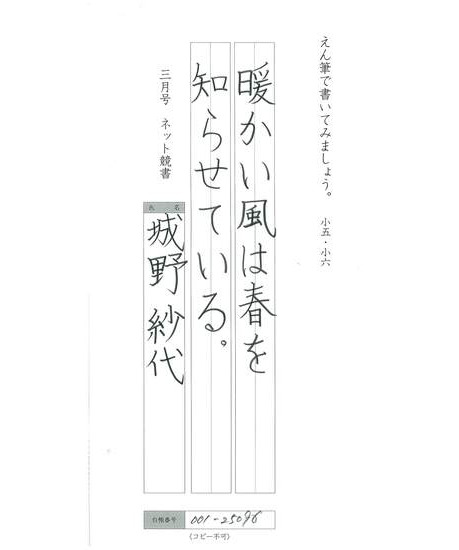 えん筆で書いてみましょう。 小五・小六
暖かい風は春を
知らせている。
三月号 ネット競書
氏名
城野紗代
台帳番号 001-25096
(コピー不可)